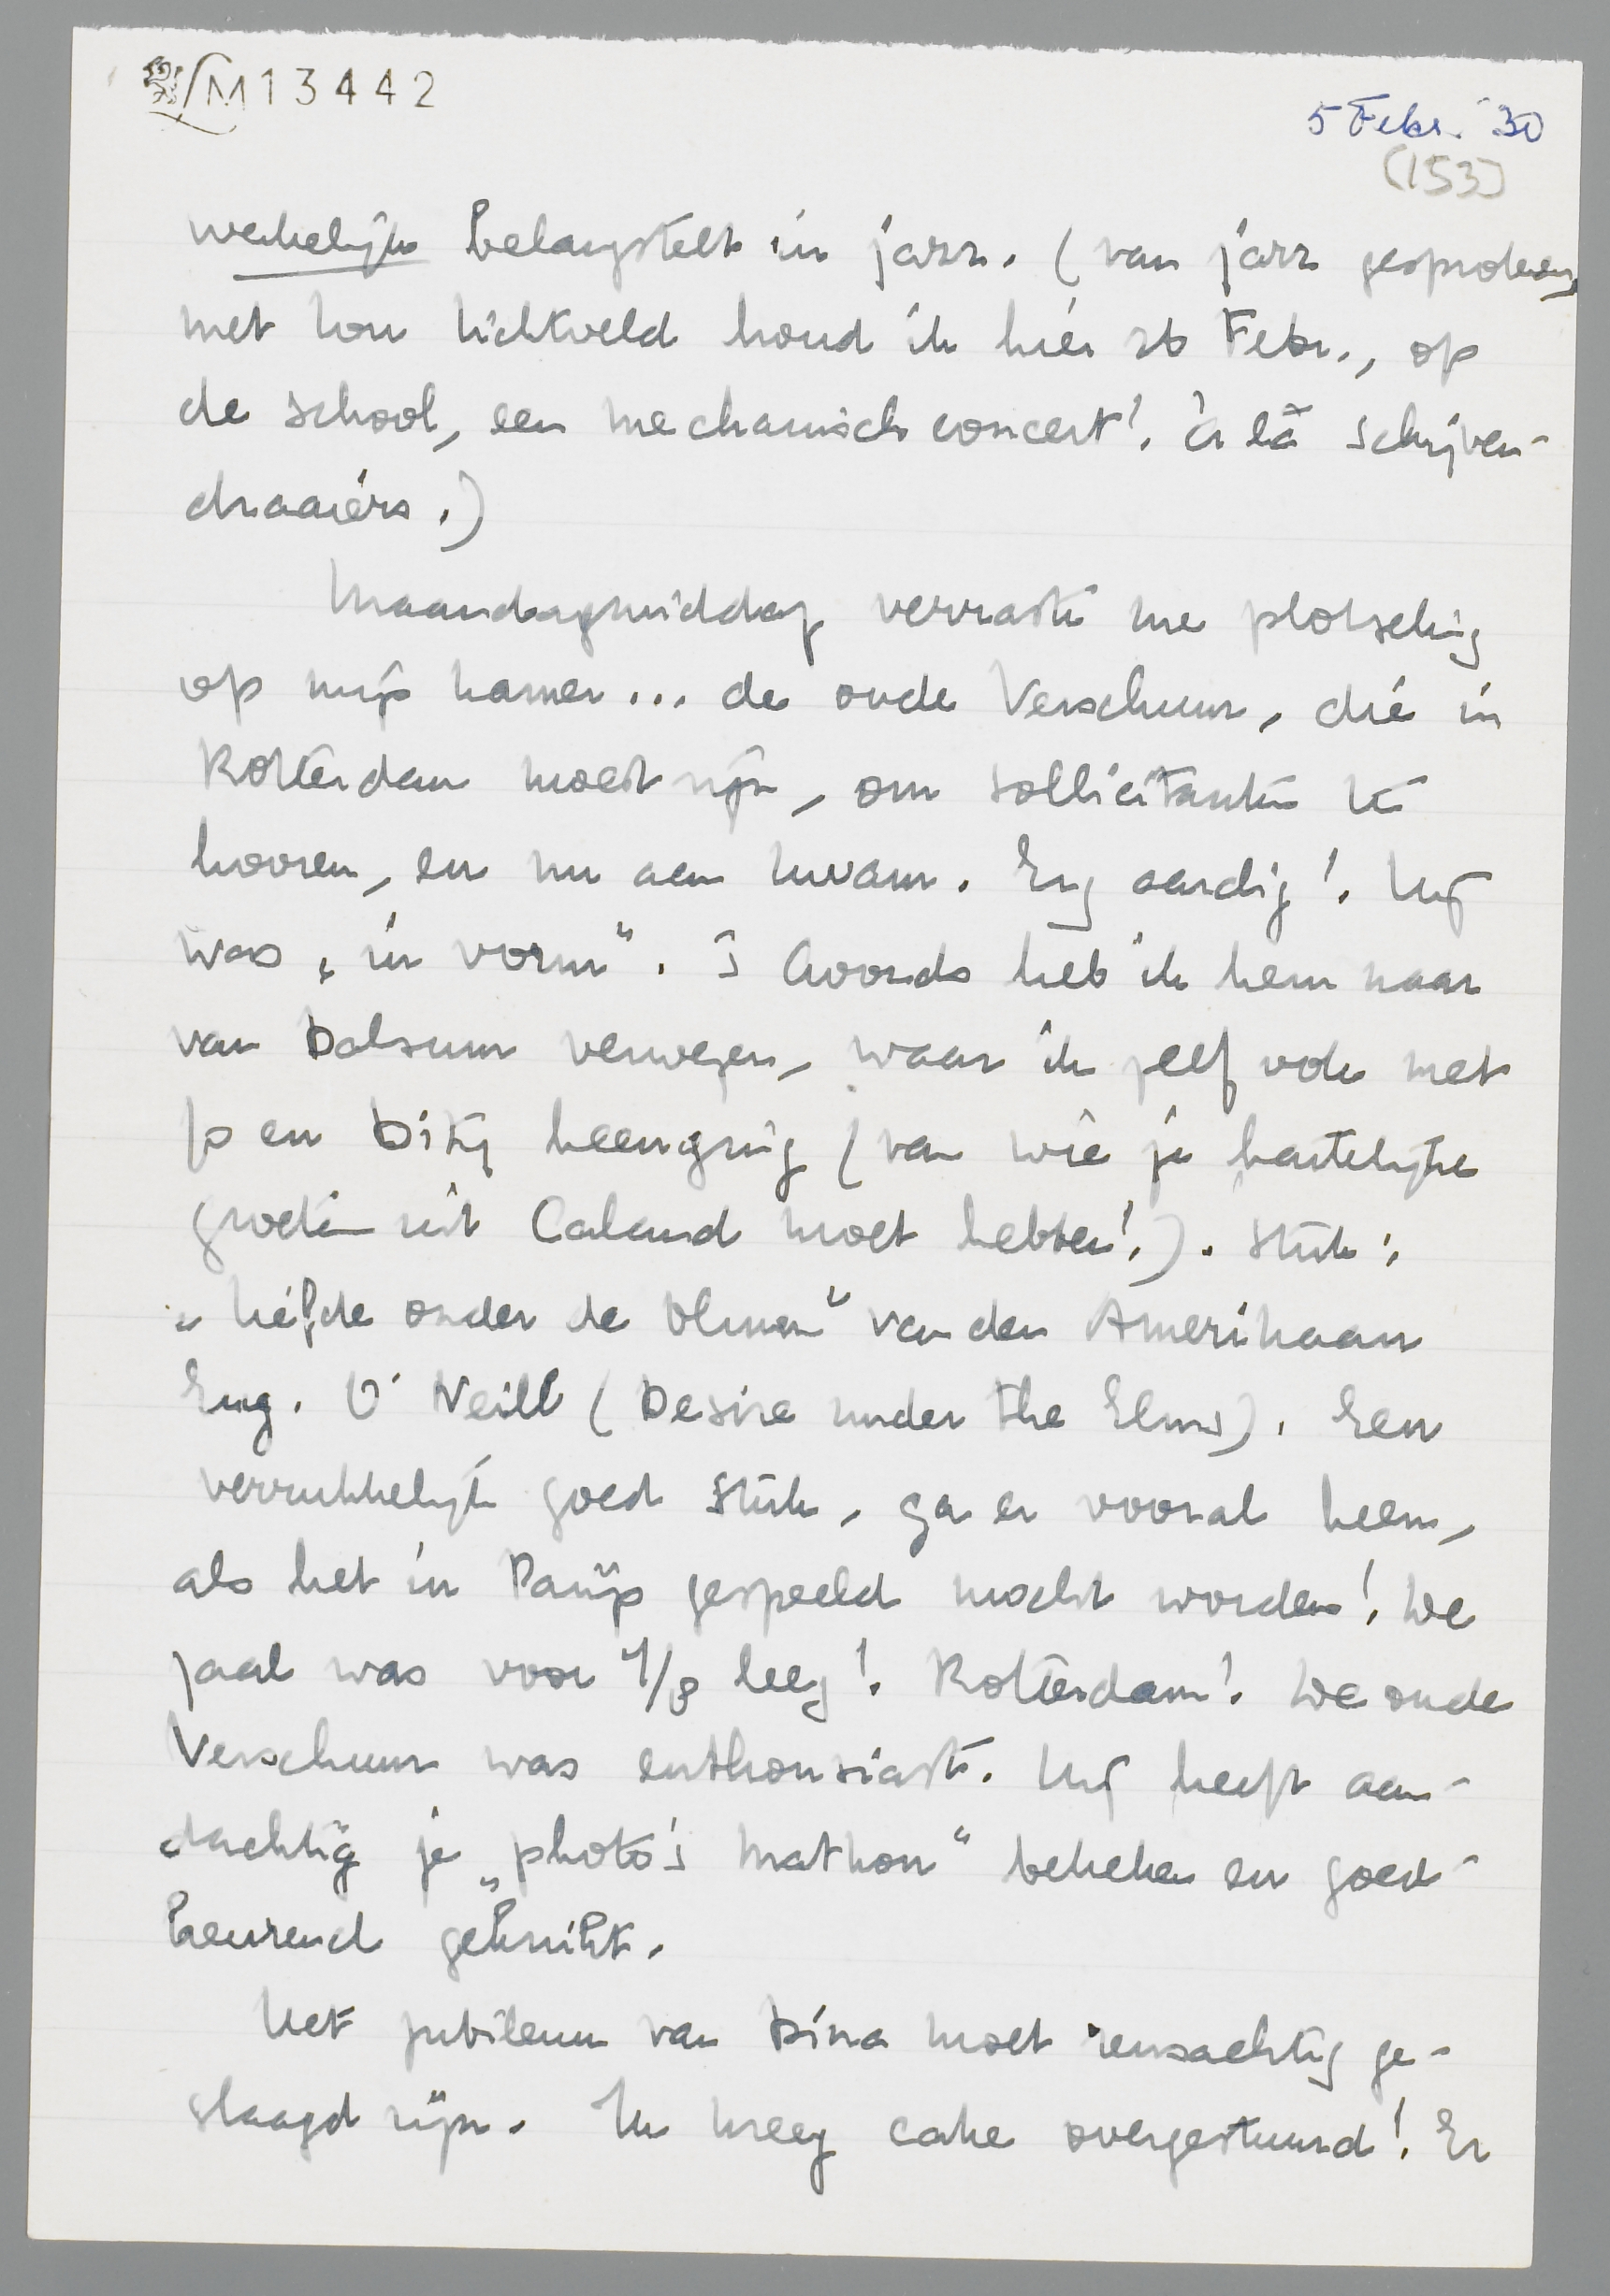 M13442
5 Febr. '30
(153)
werkelijk belangstelt in jazz. (van jazz gesproken,
met Lou Lichtveld houd ik hier 26 Febr., op
de school, een mechanisch concert! à la schijven-
draaiers.)
Maandagmiddag verraste me plotseling
op mijn kamer... de oude Verschuur, die in
Rotterdam moest zijn, om sollicitanten te
hooren, en nu aan kwam. Erg aardig! Hij
was „in vorm". 's Avonds heb ik hem naar
van Dalsum verwezen, waar ik zelf ook met
Jo en Diky heenging (van wie je hartelijke
groeten uit Caland moet hebben!). Stuk:
„Liefde onder de Olmen" van den Amerikaan
Eug. O'Neill (Desire under the Elms). Een
verrukkelijk goed stuk, ga er vooral heen,
als het in Parijs gespeeld mocht worden! De
zaal was voor 4/5 leeg! Rotterdam! De oude
Verschuur was enthousiast. Hij heeft aan-
dachtig je „photo's Mathon" bekeken en goed-
keurend geknikt.
Het jubileum van Dina moet reusachtig ge-
slaagd zijn. Ik kreeg cake overgestuurd! Er